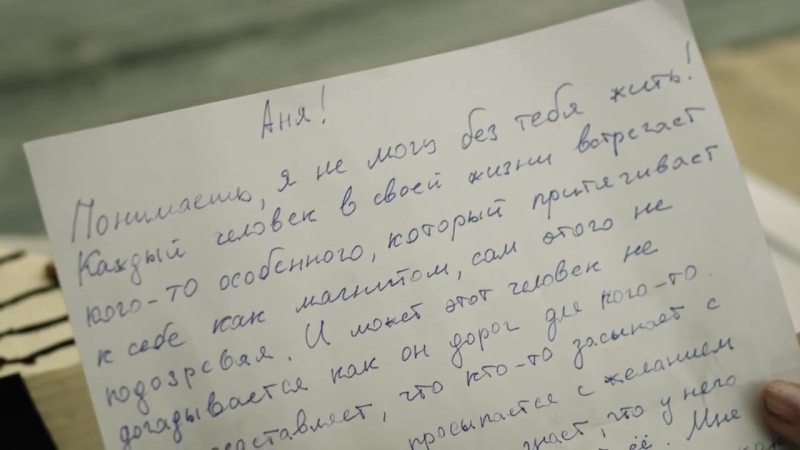 Аня!
Понимаешь, я не могу без тебя жить!
Каждый человек в своей жизни встречает
кого-то особенного, который притягивает
к себе как магнитом, сам этого не
подозревая. И может этот человек не
догадывается как он дорог для кого-то.
что кто-то засыпает с
просыпается с желанием
что у него
её. Мне